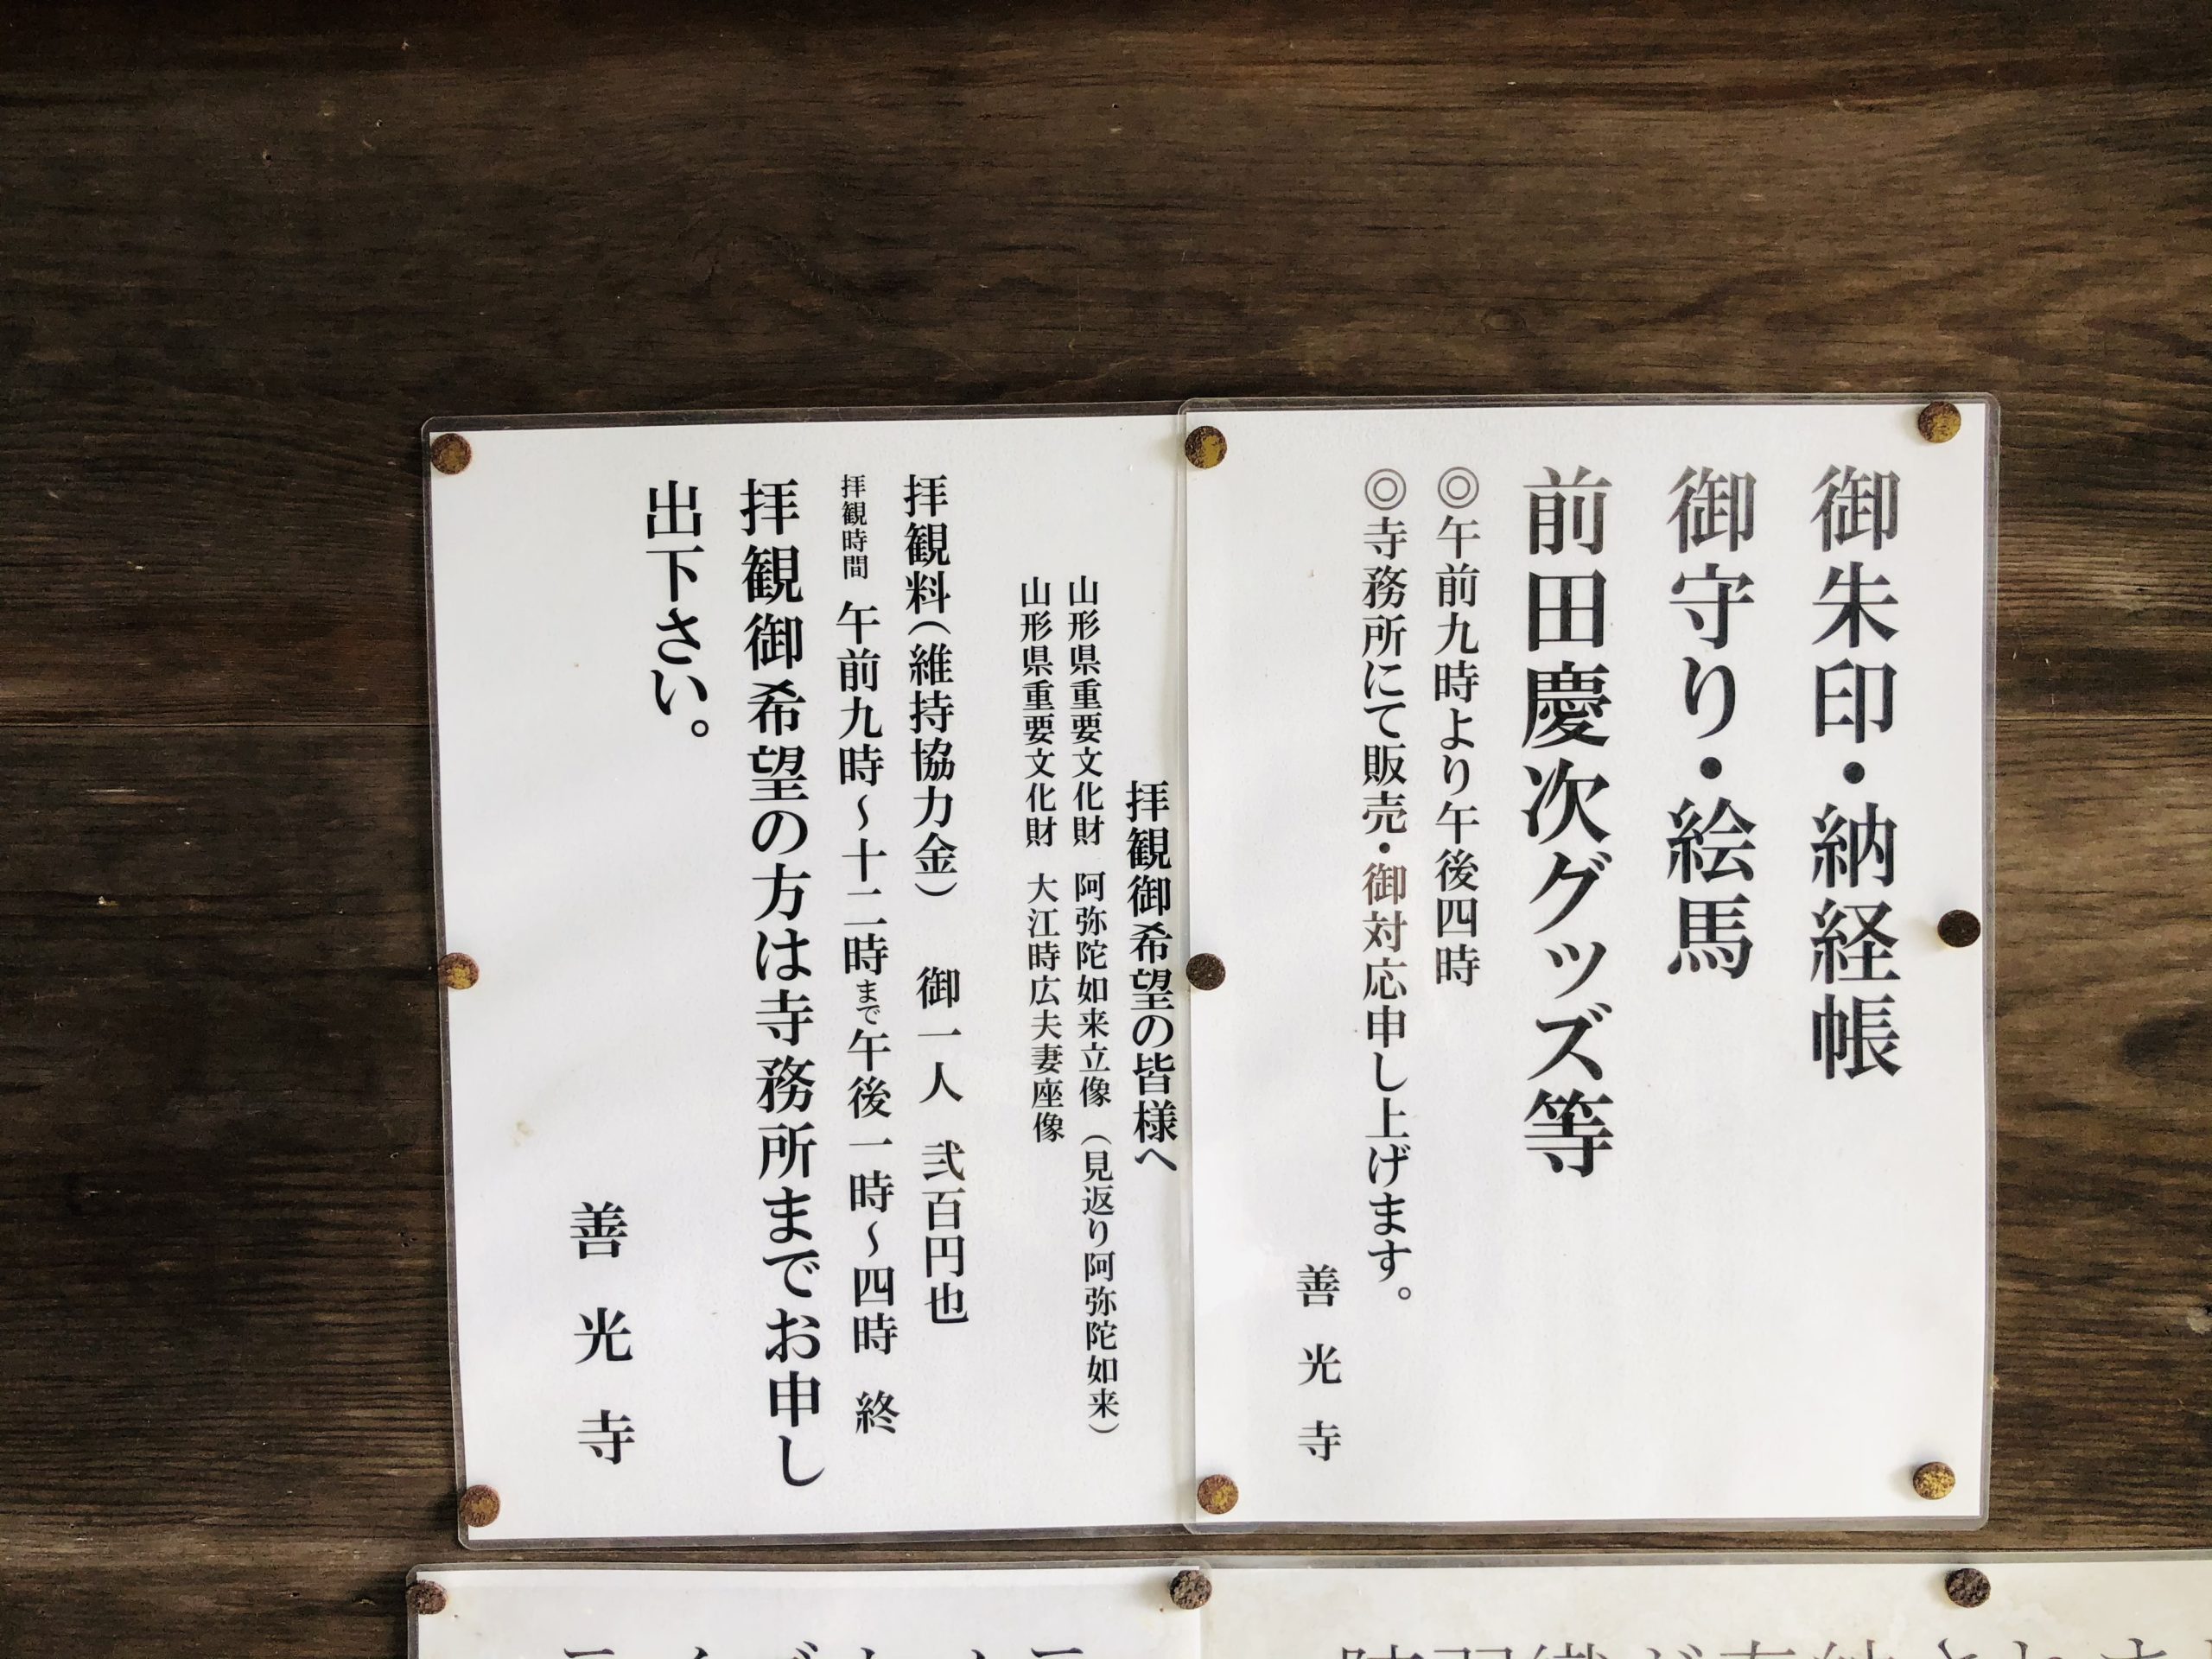 御朱印・納経帳
御守り・絵馬
前田慶次グッズ等
◎午前九時より午後四時
◎寺務所にて販売・御対応申し上げます。
善光寺
拝観御希望の皆様へ
山形県重要文化財 阿弥陀如来立像 (見返り阿弥陀如来)
山形県重要文化財 大江時広夫妻座像
拝観料(維持協力金) 御一人 弐百円也
拝観時間 午前九時～十二時まで午後一時～四時 終
拝観御希望の方は寺務所までお申し
出下さい。
善光寺